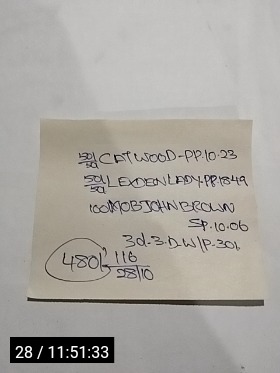 50/50 CATWOOD-PP.10-23
50/50 LEXDEN LADY.PP.1849
100 MOBJOHNBROWN
SP.10.06
3d.3.D.W/P-301
480/- 116
28/10
28 / 11:51:33